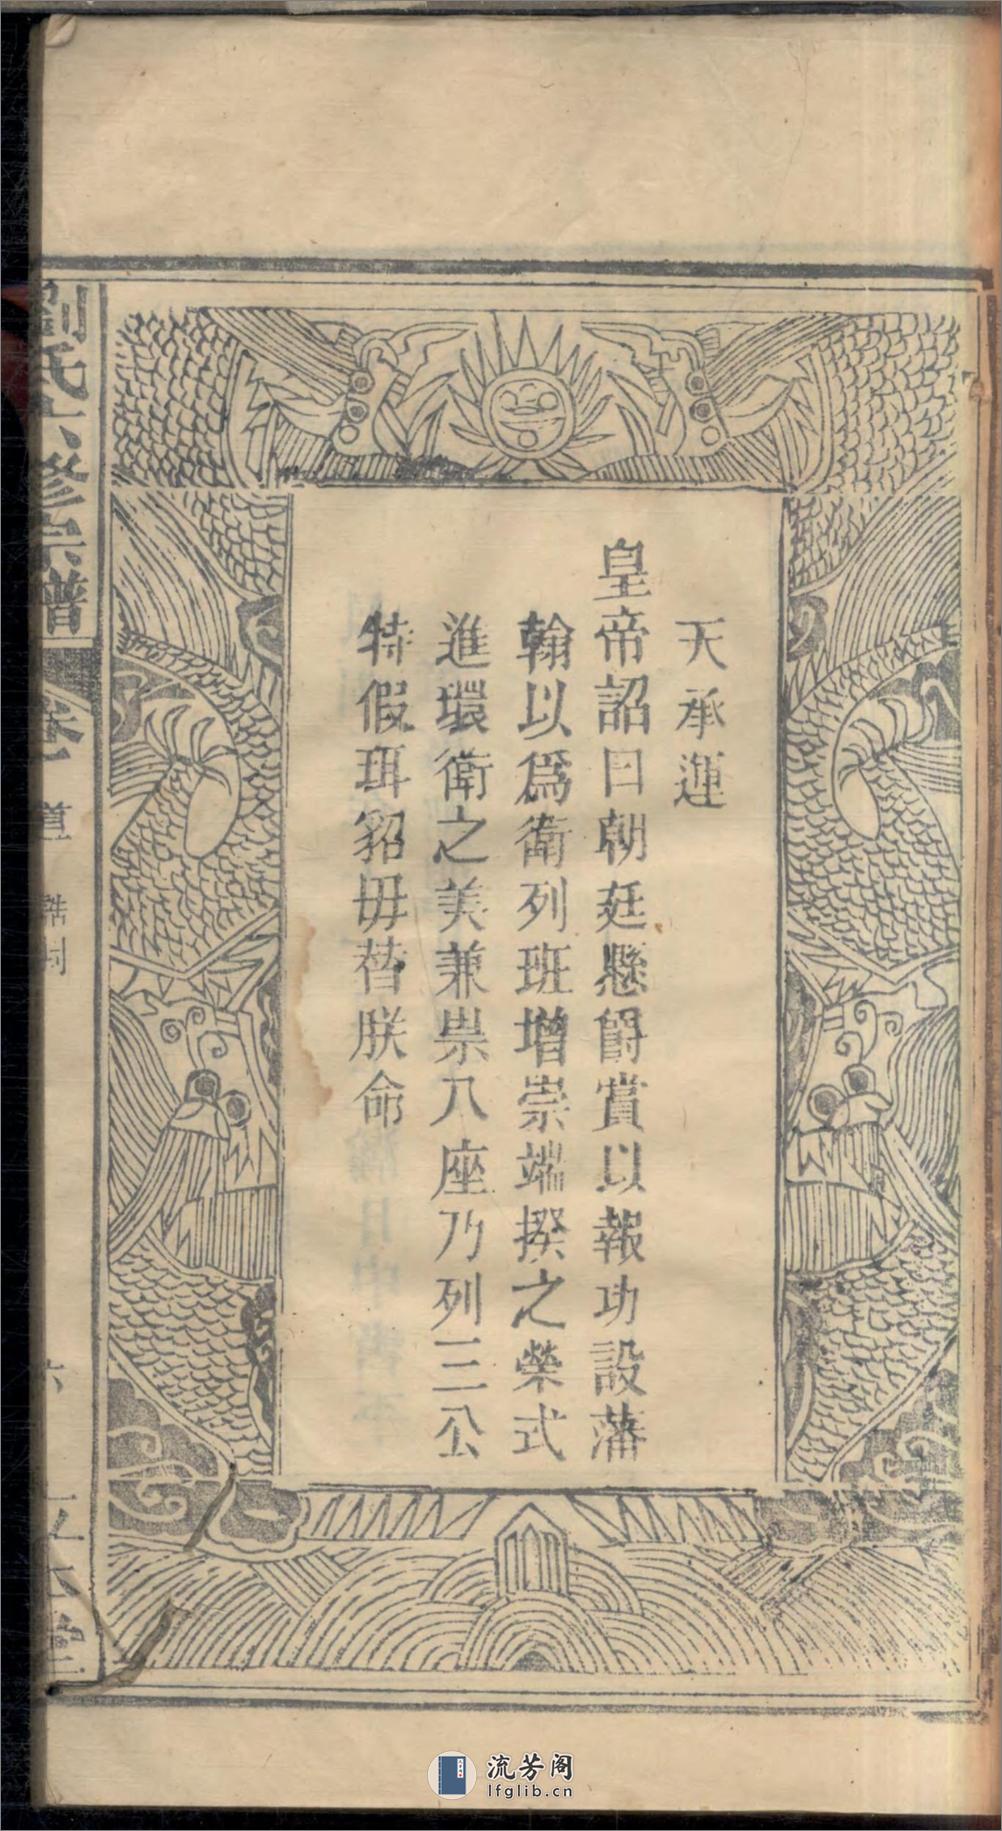 天承運
皇帝詔曰朝廷懸爵賞以報功設藩
翰以爲衛列班增崇端揆之榮式
進環衛之美兼祟八座乃列三公
特假珥貂毋替朕命
劉氏六修宗譜
卷一
誥封
六
流芳阁
lfglib.cn